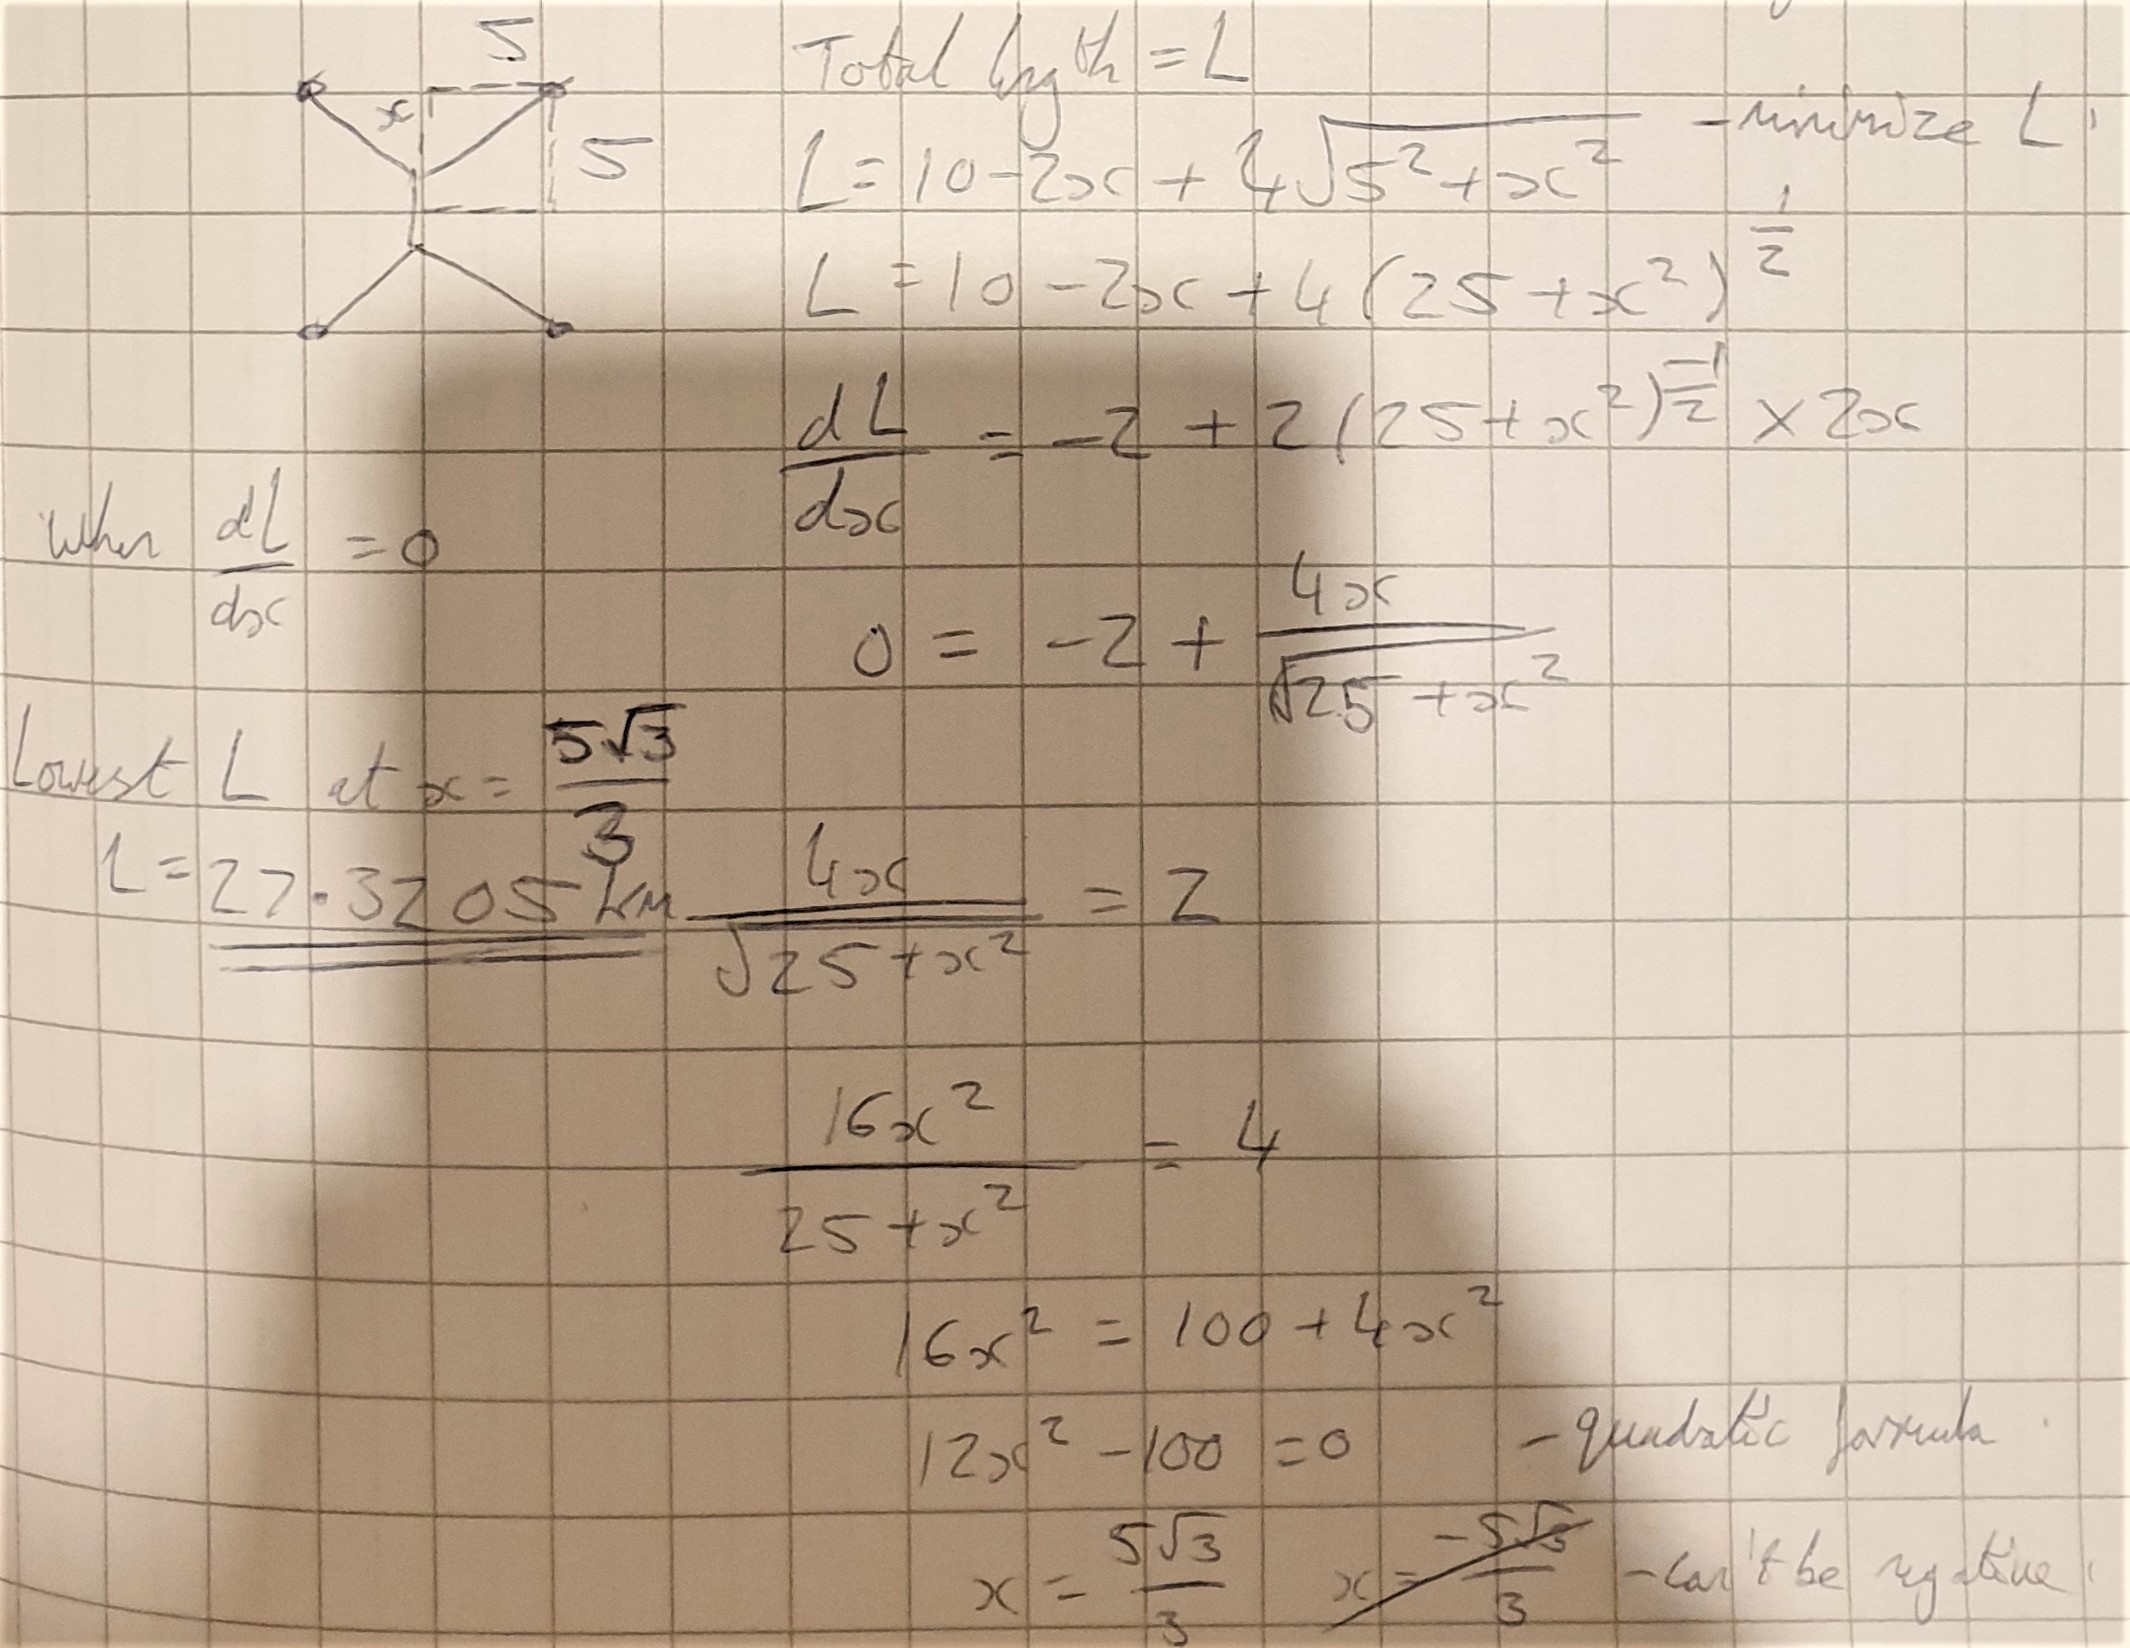 5
x
5
Total length = L
L = 10 - 2x + 4√(5² + x²) - minimize L.
L = 10 - 2x + 4(25 + x²)^(1/2)
dL/dx = -2 + 2(25 + x²)^(-1/2) × 2x
when dL/dx = 0
0 = -2 + 4x/√(25 + x²)
Lowest L at x = 5√3/3
L = 27.3205 km
4x/√(25 + x²) = 2
16x²/(25 + x²) = 4
16x² = 100 + 4x²
12x² - 100 = 0 - quadratic formula.
x = 5√3/3 x = -5√3/3 - can't be negative.